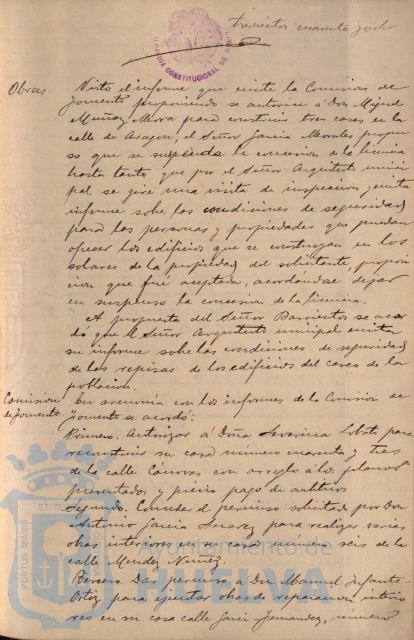 trescientos cuarenta y ocho
ALCALDIA CONSTITUCIONAL DE HUELVA
Obras
Visto el informe que emite la Comision de
Fomento proponiendo se autorice á Don Miguel
Muñoz Mora para construir tres casas en la
calle de Aragon, el Señor Garcia Morales propu
so que se suspenda la concesion de la licencia
hasta tanto que por el Señor Arquitecto munici
pal se gire una visita de inspeccion y emita
informe sobe las condiciones de seguridad
para las personas y propiedades que puedan
ofrecer los edificios que se construyan en los
solares de la propiedad del solicitante, proposi
cion que fué aceptada, acordándose dejar
en suspenso la concesion de la licencia.
A propuesta del Señor Barrientos se acor
dó que el Señor Arquitecto municipal emita
su informe sobe las condiciones de seguridad
de las repisas de los edificios del casco de la
poblacion.
Comision
de Fomento
En armonía con los informes de la Comision de
Fomento se acordó:
Primero. Autorizar á Doña Severina Lobato para
reconstruir su casa número cuarenta y tres
de la calle Cánovas con arreglo á los planos
presentados y previo pago de arbitrios
Segundo. Conceder el permiso solicitado por Don
Antonio Garcia Suarez para realizar varias
obras interiores en su casa número seis de la
calle Mendez Nuñez.
Tercero. Dar permiso á Don Manuel Infante
Ortiz para ejecutar obras de reparacion interio
res en su casa calle Garci Fernandez, número
PORTUS MARIS
ET TE
Ayuntamiento de
HUELVA